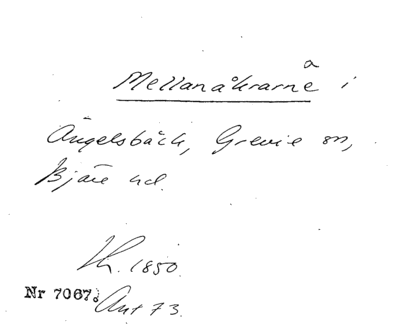 a
Mellanåkrarne i
Ängelsbäck, Grevie sn,
Bjäre hd.
1850.
Nr 7067.
Ant 73.